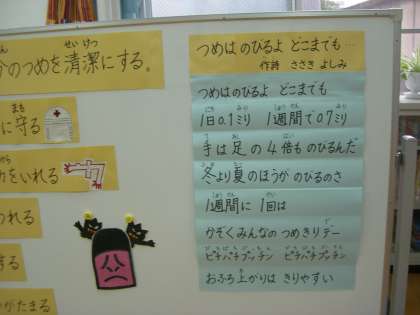 分のつめを清潔にする。
せいけつ
に守る
まも
をいれる
れる
する
がたまる
つめは のびるよ どこまでも…
作詩 ささき よしみ
つめはのびるよ どこまでも
1日0.1ミリ 1週間で0.7ミリ
手は足の4倍ものびるんだ
冬より夏のほうが のびるのさ
1週間に 1回は
かぞくみんなの つめきりデー
ピチパチプッチン ピチパチプッチン
おふろ上がりは きりやすい